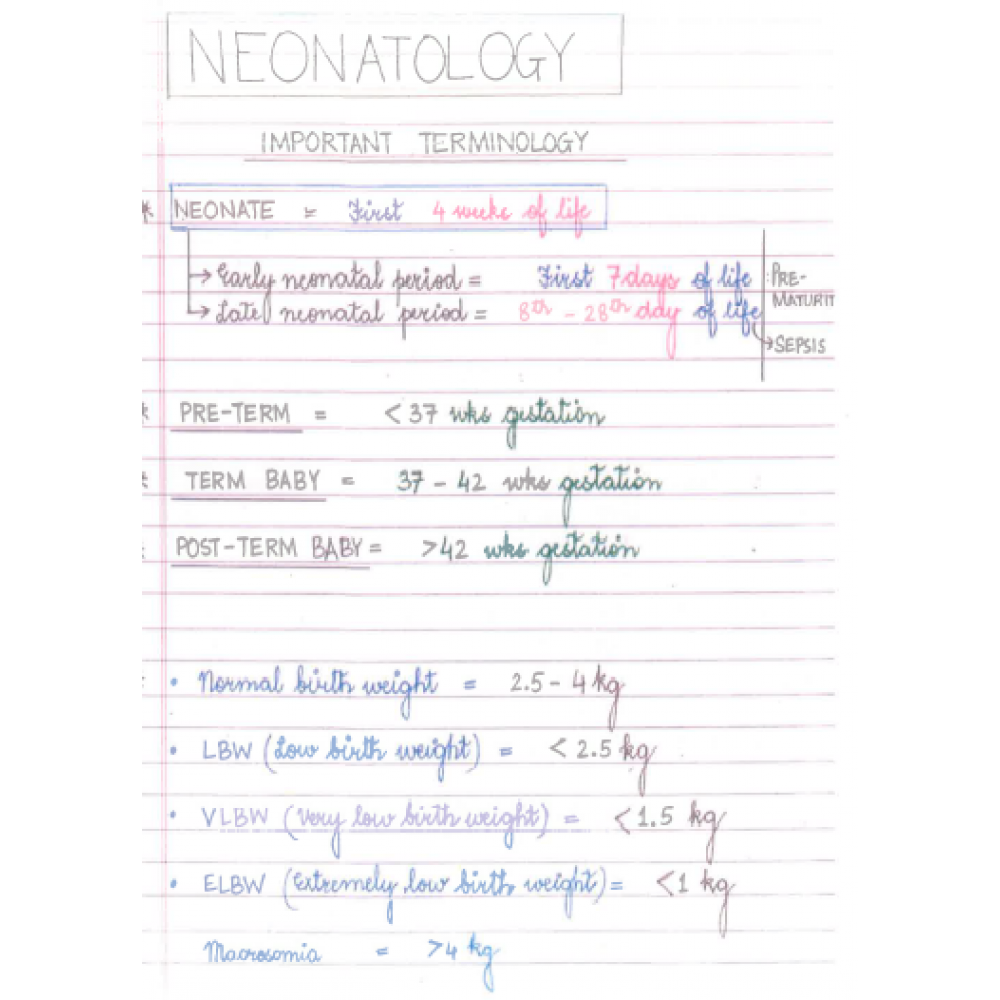 NEONATOLOGY
IMPORTANT TERMINOLOGY
* NEONATE = First 4 weeks of life
→ Early neonatal period = First 7 days of life
→ Late neonatal period = 8th - 28th day of life
PRE-
MATURIT
→ SEPSIS
* PRE-TERM = < 37 wks gestation
* TERM BABY = 37 - 42 wks gestation
POST-TERM BABY = >42 wks gestation
• Normal birth weight = 2.5 - 4 kg
• LBW (Low birth weight) = < 2.5 kg
• VLBW (Very low birth weight) = <1.5 kg
• ELBW (Extremely low birth weight) = <1 kg
Macrosomia = >4 kg